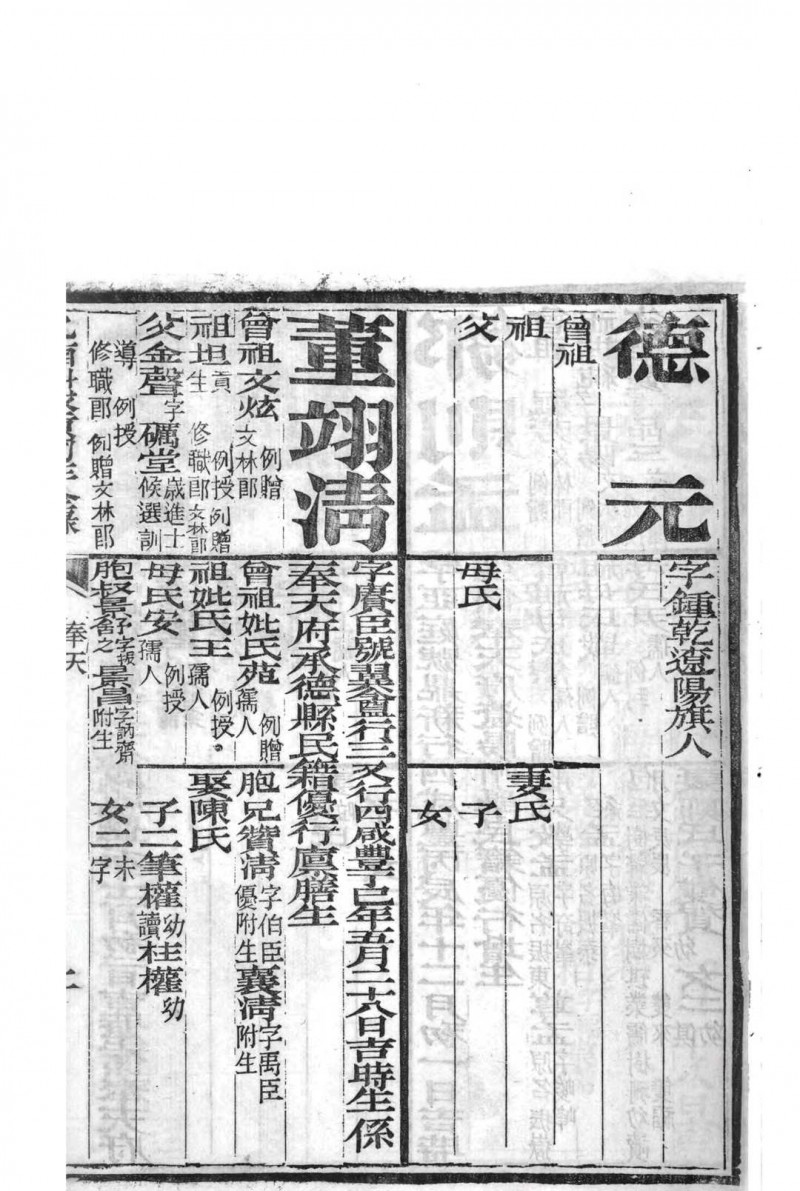 德元
字鍾乾遼陽旗人
曾祖
祖
妻氏
父
母氏
子
女
董翊清
字賡臣號翼盦行三又行四咸豐丁巳年五月二十八日吉時生係
奉天府承德縣民籍優行廩膳生
曾祖文炫例贈文林郎
曾祖妣氏苑例贈孺人
胞兄贊清字伯臣優附生襄清字禹臣附生
祖坦貢生例授修職郎例贈文林郎
祖妣氏王例授孺人
娶陳氏
父金聲字礪堂歲進士候選訓
導例授修職郎例贈文林郎
母氏安例授孺人
子二筆權幼讀柱權幼
胞景昌字訥齋附生
女二未字
奉天